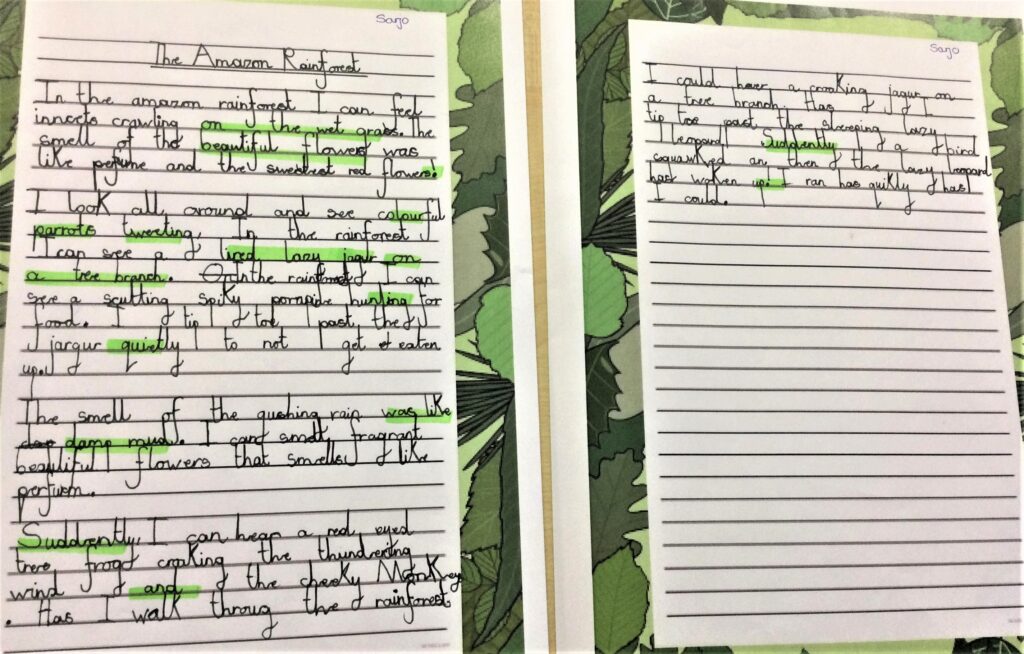 Sanjo
The Amazon Rainforest
In the amazon rainforest I can feel
inncets crawling on the wet grass. The
smell of the beautiful flowers was
like perfume and the sweetest red flowers!
I look all around and see colourful
parrots tweeting. In the rainforest
I can see a tired lazy jagur on
a tree branch. In the rainforest I can
see a scutting spiky hunting for
food. I tip toe past the
jargur quietly to not get eaten
up.
The smell of the gushing rain was like
damp mud. I can smell fragrant
beautiful flowers that smells like
perfum.
Suddently I can hear a red eyed
tree frog croaking the thundering
wind and the cheeky Monkeys
. Has I walk throug the rainforest.
Sanjo
I could hear a croaking jagur on
a tree branch. Has I
tip toe past the sleeping lazy
leopard Suddently a bird
squawked an then the lazy leopard
has woken up. I ran has quikly has
I could.